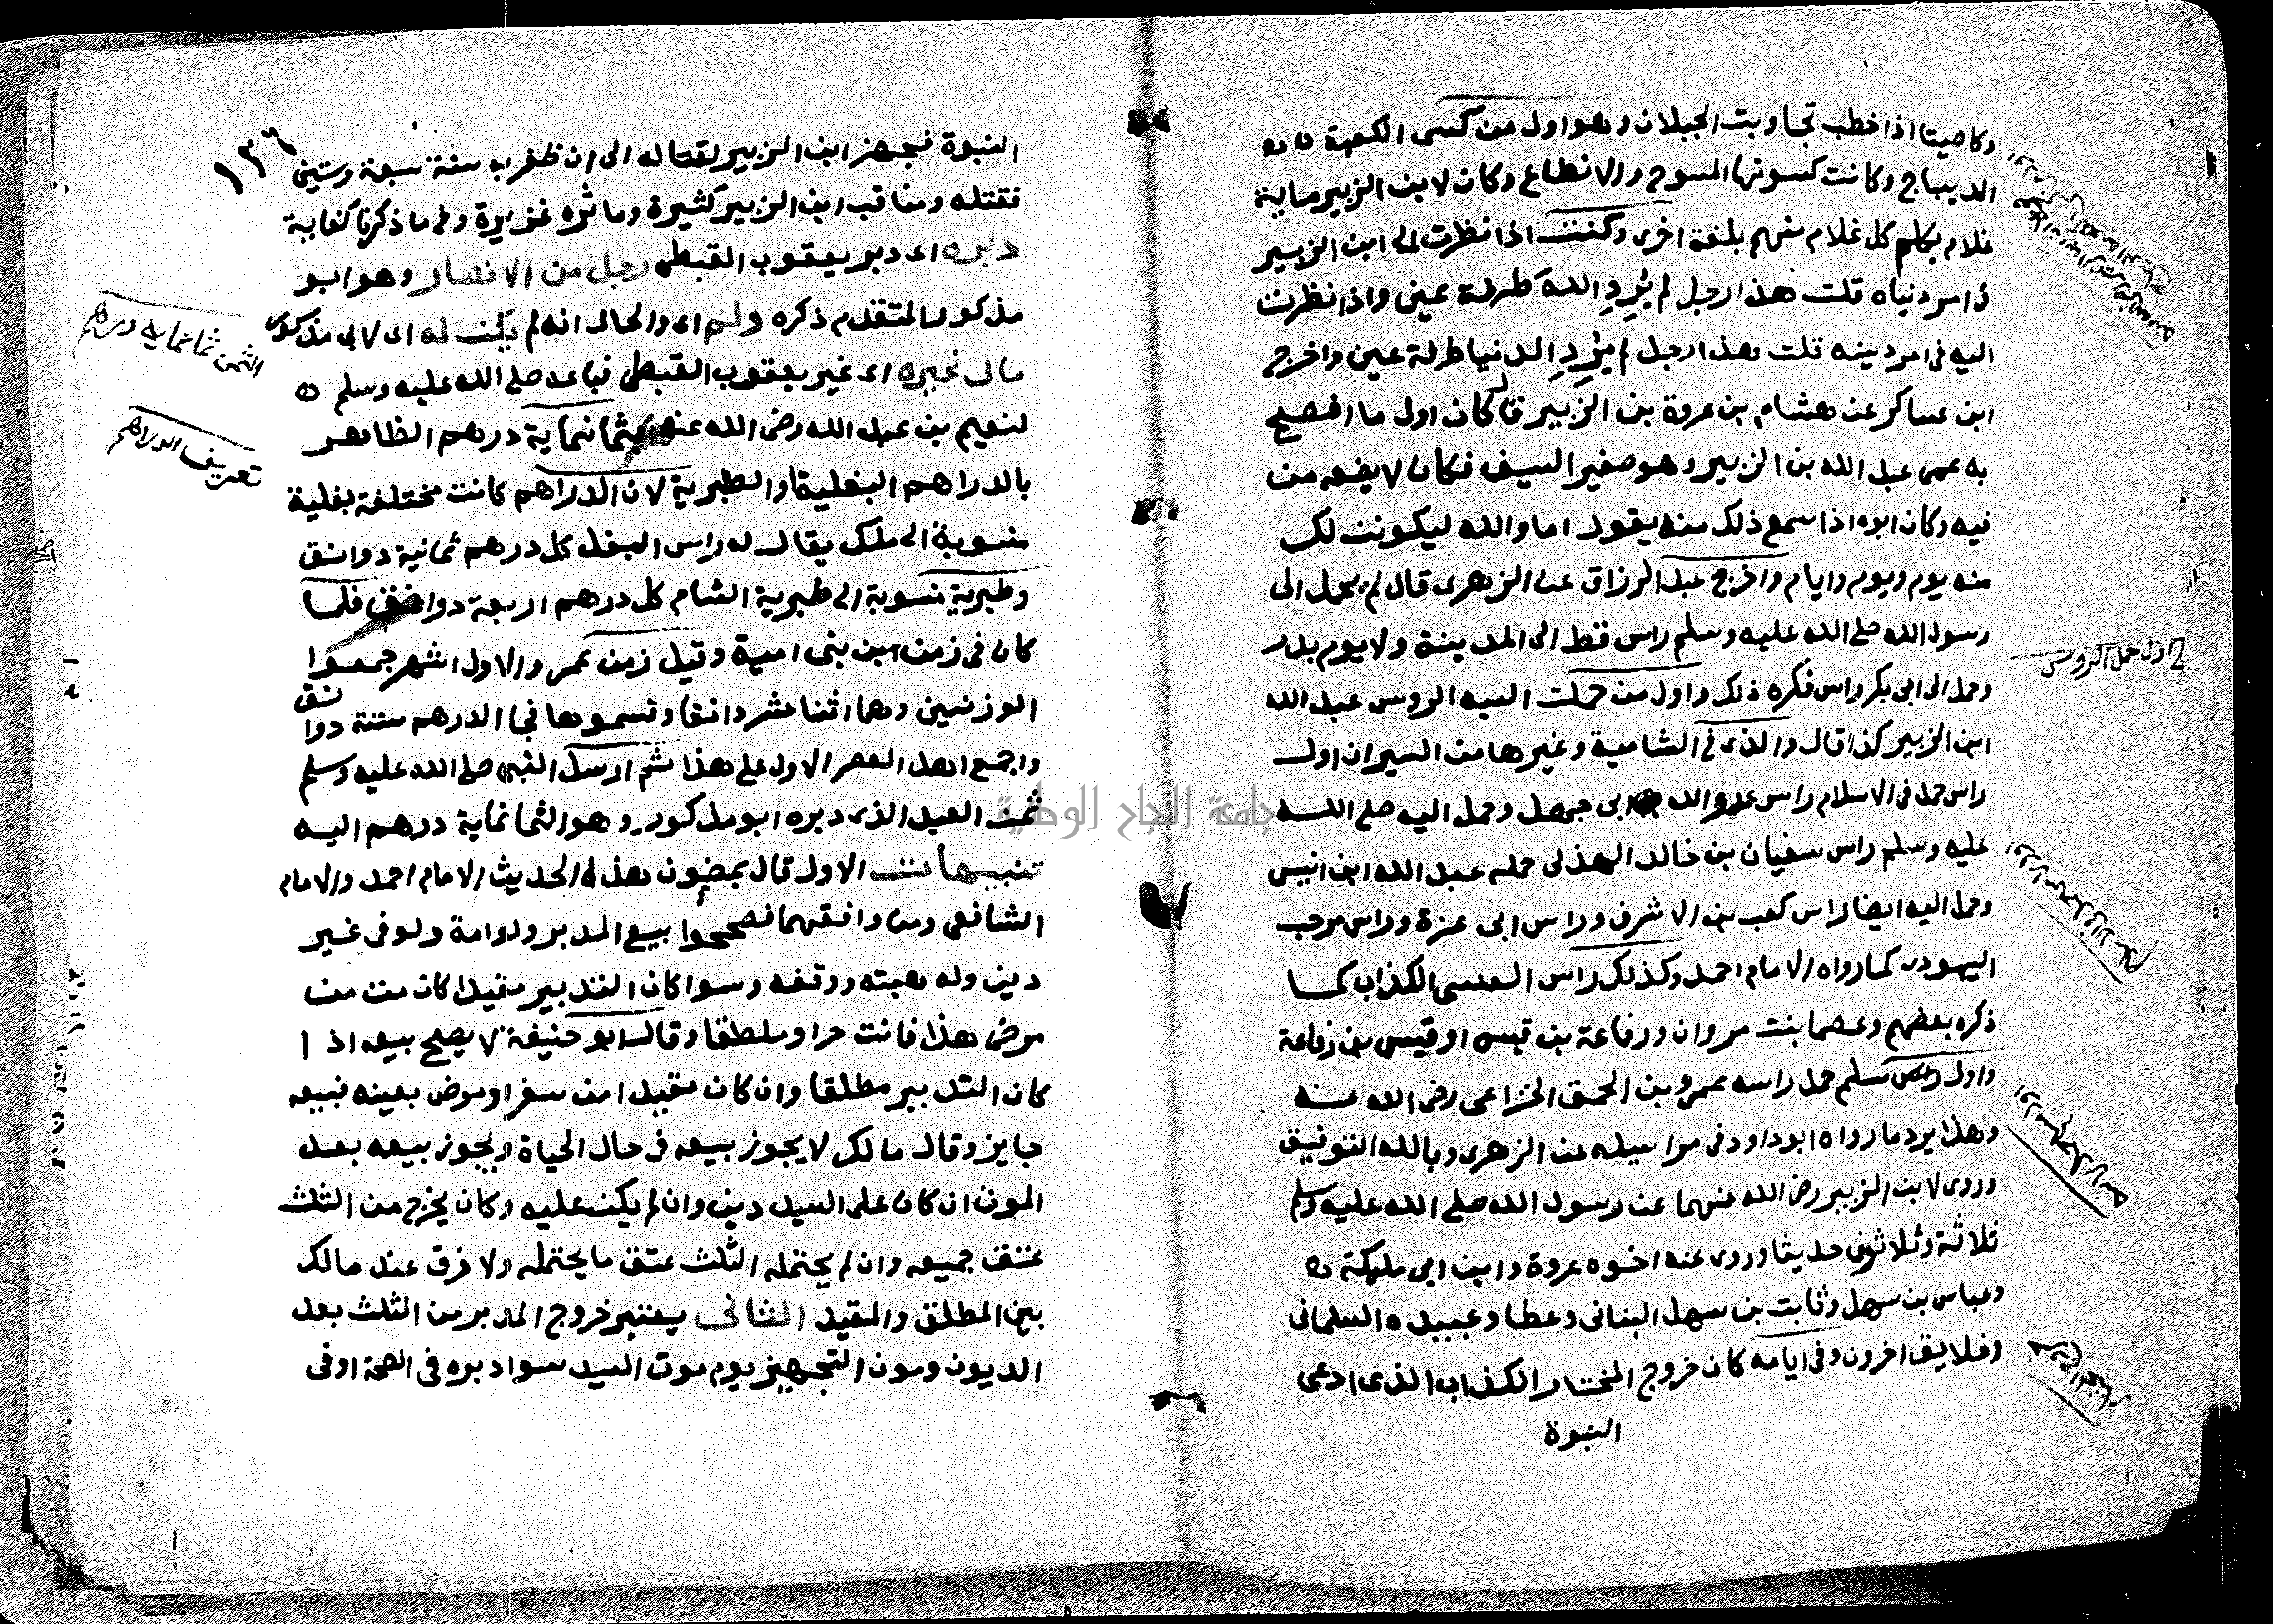 وكاصيتا اذا خطب تجاوبت الجبلان وهو اول من كسى الكعبة
الديباج وكانت كسوتها المسوح والانطاع وكان لابن الزبير ماية
غلام يكلم كل غلام منهم بلغة اخرى وكنت اذا نظرت الى ابن الزبير
في امر دنياه قلت هذا رجل لم يُرِدِ الله طرفة عين واذا نظرت
اليه في امر دينه قلت هذا رجل لم يُرِدِ الدنيا طرفة عين واخرج
ابن عساكر عن هشام بن عروة بن الزبير قال كان اول ما افصح
به عمى عبد الله بن الزبير وهو صغير السيف فكان لا يضعه من
فيه وكان ابوه اذا سمع ذلك منه يقول اما والله ليكونن لك
منه يوم ويوم وايام واخرج عبد الرزاق عن الزهرى قال لم يحمل الى
رسول الله صلى الله عليه وسلم راس قط الى المدينة ولا يوم بدر
وحمل الى ابى بكر راس فكره ذلك واول من حملت اليه الروس عبد الله
ابن الزبير كذا قال والذى في الشامية وغيرها من السير ان اول
راس حمل في الاسلام راس عدو الله ابى جهل وحمل اليه صلى الله
عليه وسلم راس سفيان بن خالد الهذلى حمله عبد الله ابن انيس
وحمل اليه ايضا راس كعب بن الاشرف وراس ابى عزة وراس مرحب
اليهودى كما رواه الامام احمد وكذلك راس العنسى الكذاب كما
ذكره بعضهم وعصما بنت مروان ورفاعة بن قيس او قيس بن رفاعة
واول راس مسلم حمل راسه عمرو بن الحمق الخزاعى رضى الله عنه
وهذا يرد ما رواه ابو داود في مراسيله عن الزهرى وبالله التوفيق
وروى لابن الزبير رضى الله عنهما عن رسول الله صلى الله عليه وسلم
ثلاثة وثلاثون حديثا وروى عنه اخوه عروة وابن ابى مليكة
وعباس بن سهل وثابت بن سهل البنانى وعطا وعبيده السلمانى
وخلايق اخرون وفى ايامه كان خروج المختار الكذاب الذى ادعى
النبوة
اول حمل الروس
١٣٦
النبوة فجهز ابن الزبير لقتاله الى ان ظفر به سنة سبعة وستين
فقتله ومناقب ابن الزبير كثيرة وماثره غزيرة وفى ما ذكرنا كفاية
دبره اى دبر يعقوب القبطى رجل من الانصار وهو ابو
مذكور المتقدم ذكره ولم اى والحال انه لم يكن له اى لابى مذكور
مال غيره اى غير يعقوب القبطى فباعه صلى الله عليه وسلم
لنعيم بن عبد الله رضى الله عنه بثمانماية درهم الظاهر
بالدراهم البغلية او الطبرية لان الدراهم كانت مختلفة بغلية
منسوبة الى ملك يقال له راس البغل كل درهم ثمانية دوانق
وطبرية منسوبة الى طبرية الشام كل درهم اربعة دوانق فلما
كان فى زمن ابن بنى امية وقيل زمن عمر والاول اشهر جمعوا
الوزنين وهما اثنا عشر دانقا وقسموها فجا الدرهم ستة دوا
نق
واجمع اهل العصر الاول على هذا ثم ارسل النبى صلى الله عليه وسلم
ثمن العبد الذى دبره ابو مذكور وهو الثمانماية درهم اليه
تنبيهات الاول قال بمضون هذا الحديث الامام احمد والامام
الشافعى ومن وافقهما فصححوا بيع المدبر ولو امة ولو فى غير
دين وله هبته ووقفه وسوا كان التدبير مقيدا كان مت من
مرضى هذا فانت حر او مطلقا وقال ابو حنيفة لا يصح بيعه اذا
كان التدبير مطلقا وان كان مقيدا من سفر او مرض بعينه فبيعه
جايز وقال مالك لا يجوز بيعه فى حال الحياة ويجوز بيعه بعد
الموت ان كان على السيد دين وان لم يكن عليه وكان يخرج من الثلث
عتق جميعه وان لم يحتمله الثلث عتق ما يحتمله ولا فرق عند مالك
بين المطلق والمقيد الثانى يعتبر خروج المدبر من الثلث بعد
الديون ومون التجهيز يوم موت السيد سوا دبره فى الصحة او فى
الثمن ثمانماية درهم
تعريف الدراهم
جامعة النجاح الوطنية